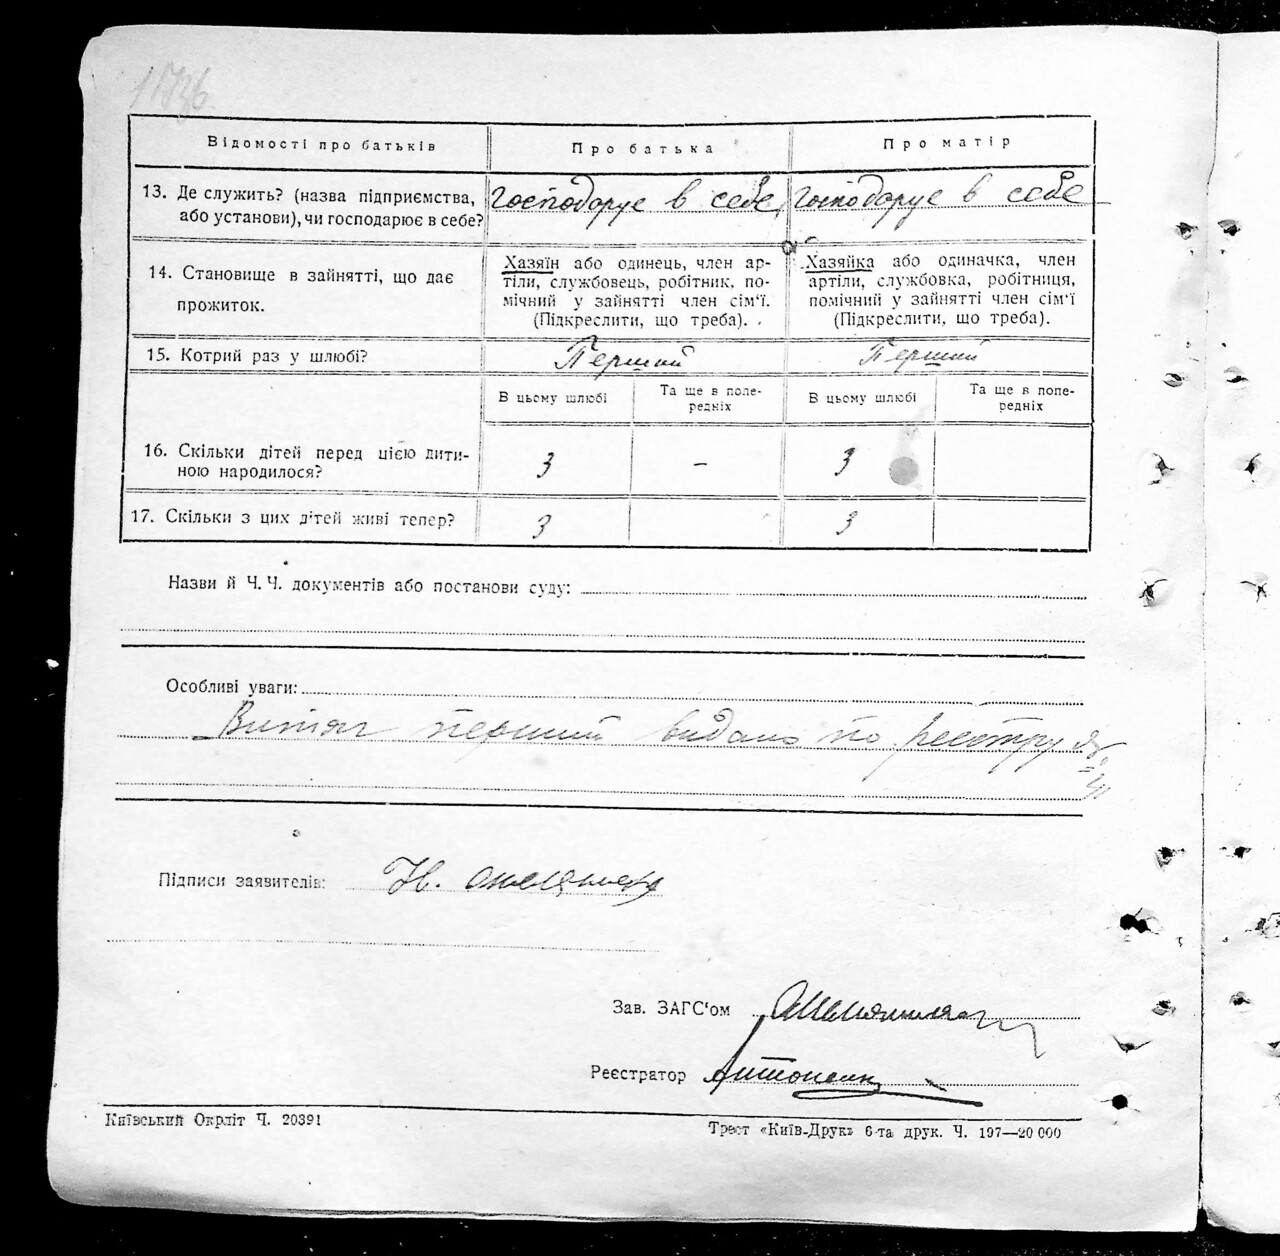 Відомості про батьків
Про батька
Про матір
13. Де служить? (назва підприємства,
або установи), чи господарює в себе?
господарує в себе
господарує в себе
14. Становище в зайнятті, що дає
прожиток.
Хазяїн або одинець, член ар-
тіли, службовець, робітник, по-
мічний у зайнятті член сім'ї.
(Підкреслити, що треба).
Хазяйка або одиначка, член
артіли, службовка, робітниця,
помічний у зайнятті член сім'ї
(Підкреслити, що треба).
15. Котрий раз у шлюбі?
Перший
Перший
В цьому шлюбі
Та ще в попе-
редніх
В цьому шлюбі
Та ще в попе-
редніх
16. Скільки дітей перед цією дити-
ною народилося?
3
–
3
17. Скільки з цих дітей живі тепер?
3
3
Назви й Ч. Ч. документів або постанови суду:
Особливі уваги:
Витяг перший видано по реєстру
Підписи заявителів:
Зав. ЗАГС'ом
Реєстратор Антоненко
Київський Окрліт Ч. 20391
Трест «Київ-Друк» 6-та друк. Ч. 197—20 000